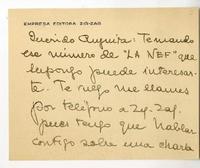 EMPRESA EDITORA ZIG-ZAG
Querido Augusto: Te mando
ese número de "LA NEF" que
supongo puede interesar-
te. Te ruego me llames
por teléfono a Zig-Zag
pues tengo que hablar
contigo sobre una charla